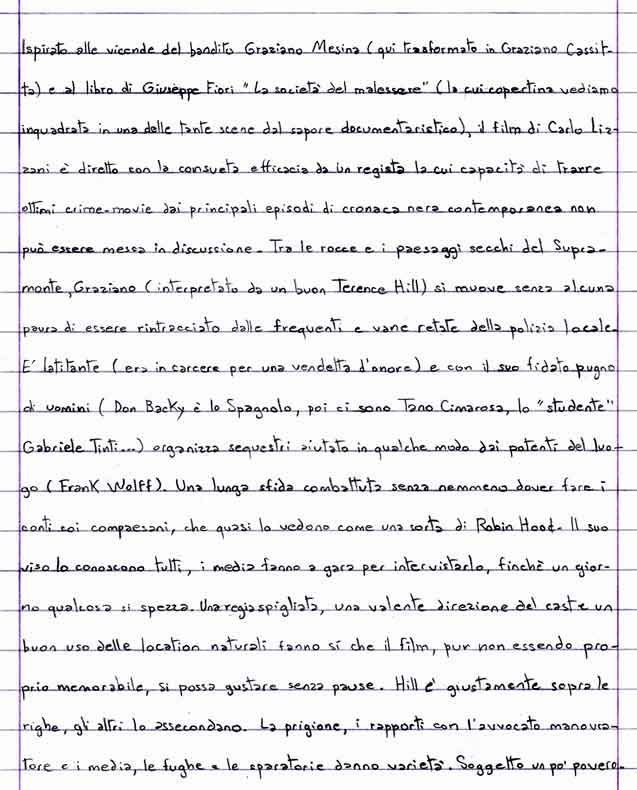 Ispirato alle vicende del bandito Graziano Mesina (qui trasformato in Graziano Cassit-
ta) e al libro di Giuseppe Fiori "La società del malessere" (la cui copertina vediamo
inquadrata in una delle tante scene dal sapore documentaristico), il film di Carlo Liz-
zani è diretto con la consueta efficacia da un regista la cui capacità di trarre
ottimi crime-movie dai principali episodi di cronaca nera contemporanea non
può essere messa in discussione. Tra le rocce e i paesaggi secchi del Supra-
monte, Graziano (interpretato da un buon Terence Hill) si muove senza alcuna
paura di essere rintracciato dalle frequenti e vane retate della polizia locale.
E' latitante (era in carcere per una vendetta d'onore) e con il suo fidato pugno
di uomini (Don Backy è lo Spagnolo, poi ci sono Tano Cimarosa, lo "studente"
Gabriele Tinti...) organizza sequestri aiutato in qualche modo dai potenti del luo-
go (Frank Wolff). Una lunga sfida combattuta senza nemmeno dover fare i
conti coi compaesani, che quasi lo vedono come una sorta di Robin Hood. Il suo
viso lo conoscono tutti, i media fanno a gara per intervistarlo, finchè un gior-
no qualcosa si spezza. Una regia spigliata, una valente direzione del cast e un
buon uso delle location naturali fanno sì che il film, pur non essendo pro-
prio memorabile, si possa gustare senza pause. Hill è giustamente sopra le
righe, gli altri lo assecondano. La prigione, i rapporti con l'avvocato manovra-
tore e i media, le fughe e le sparatorie danno varietà. Soggetto un po' povero.